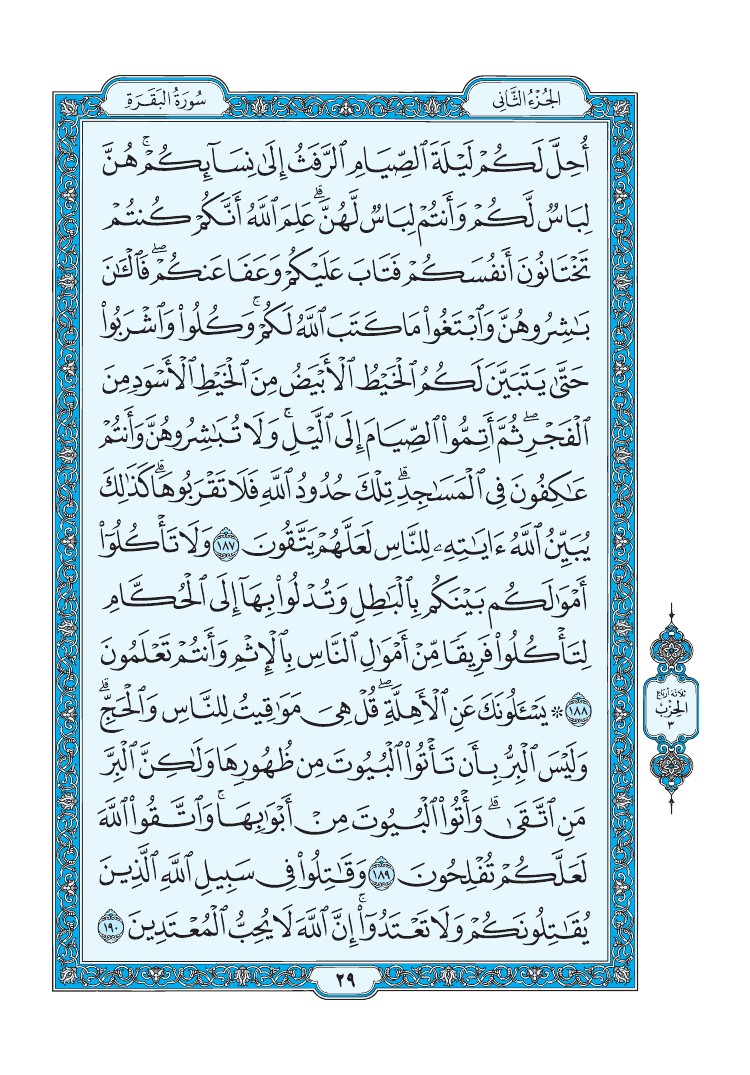 الجُزْءُ الثَّانِي
سُورَةُ البَقَرَةِ
أُحِلَّ لَكُمْ لَيْلَةَ ٱلصِّيَامِ ٱلرَّفَثُ إِلَىٰ نِسَآئِكُمْۚ هُنَّ
لِبَاسٌ لَّكُمْ وَأَنتُمْ لِبَاسٌ لَّهُنَّۗ عَلِمَ ٱللَّهُ أَنَّكُمْ كُنتُمْ
تَخْتَانُونَ أَنفُسَكُمْ فَتَابَ عَلَيْكُمْ وَعَفَا عَنكُمْۖ فَٱلْـَٰٔنَ
بَـٰشِرُوهُنَّ وَٱبْتَغُوا۟ مَا كَتَبَ ٱللَّهُ لَكُمْۚ وَكُلُوا۟ وَٱشْرَبُوا۟
حَتَّىٰ يَتَبَيَّنَ لَكُمُ ٱلْخَيْطُ ٱلْأَبْيَضُ مِنَ ٱلْخَيْطِ ٱلْأَسْوَدِ مِنَ
ٱلْفَجْرِۖ ثُمَّ أَتِمُّوا۟ ٱلصِّيَامَ إِلَى ٱلَّيْلِۚ وَلَا تُبَـٰشِرُوهُنَّ وَأَنتُمْ
عَـٰكِفُونَ فِى ٱلْمَسَـٰجِدِۗ تِلْكَ حُدُودُ ٱللَّهِ فَلَا تَقْرَبُوهَاۗ كَذَٰلِكَ
يُبَيِّنُ ٱللَّهُ ءَايَـٰتِهِۦ لِلنَّاسِ لَعَلَّهُمْ يَتَّقُونَ ١٨٧ وَلَا تَأْكُلُوٓا۟
أَمْوَٰلَكُم بَيْنَكُم بِٱلْبَـٰطِلِ وَتُدْلُوا۟ بِهَآ إِلَى ٱلْحُكَّامِ
لِتَأْكُلُوا۟ فَرِيقًا مِّنْ أَمْوَٰلِ ٱلنَّاسِ بِٱلْإِثْمِ وَأَنتُمْ تَعْلَمُونَ
١٨٨ ۞ يَسْـَٔلُونَكَ عَنِ ٱلْأَهِلَّةِۖ قُلْ هِىَ مَوَٰقِيتُ لِلنَّاسِ وَٱلْحَجِّۗ
وَلَيْسَ ٱلْبِرُّ بِأَن تَأْتُوا۟ ٱلْبُيُوتَ مِن ظُهُورِهَا وَلَـٰكِنَّ ٱلْبِرَّ
مَنِ ٱتَّقَىٰۗ وَأْتُوا۟ ٱلْبُيُوتَ مِنْ أَبْوَٰبِهَاۚ وَٱتَّقُوا۟ ٱللَّهَ
لَعَلَّكُمْ تُفْلِحُونَ ١٨٩ وَقَـٰتِلُوا۟ فِى سَبِيلِ ٱللَّهِ ٱلَّذِينَ
يُقَـٰتِلُونَكُمْ وَلَا تَعْتَدُوٓا۟ۚ إِنَّ ٱللَّهَ لَا يُحِبُّ ٱلْمُعْتَدِينَ ١٩٠
ثلاثة أرباع
الحِزْب
٣
٢٩